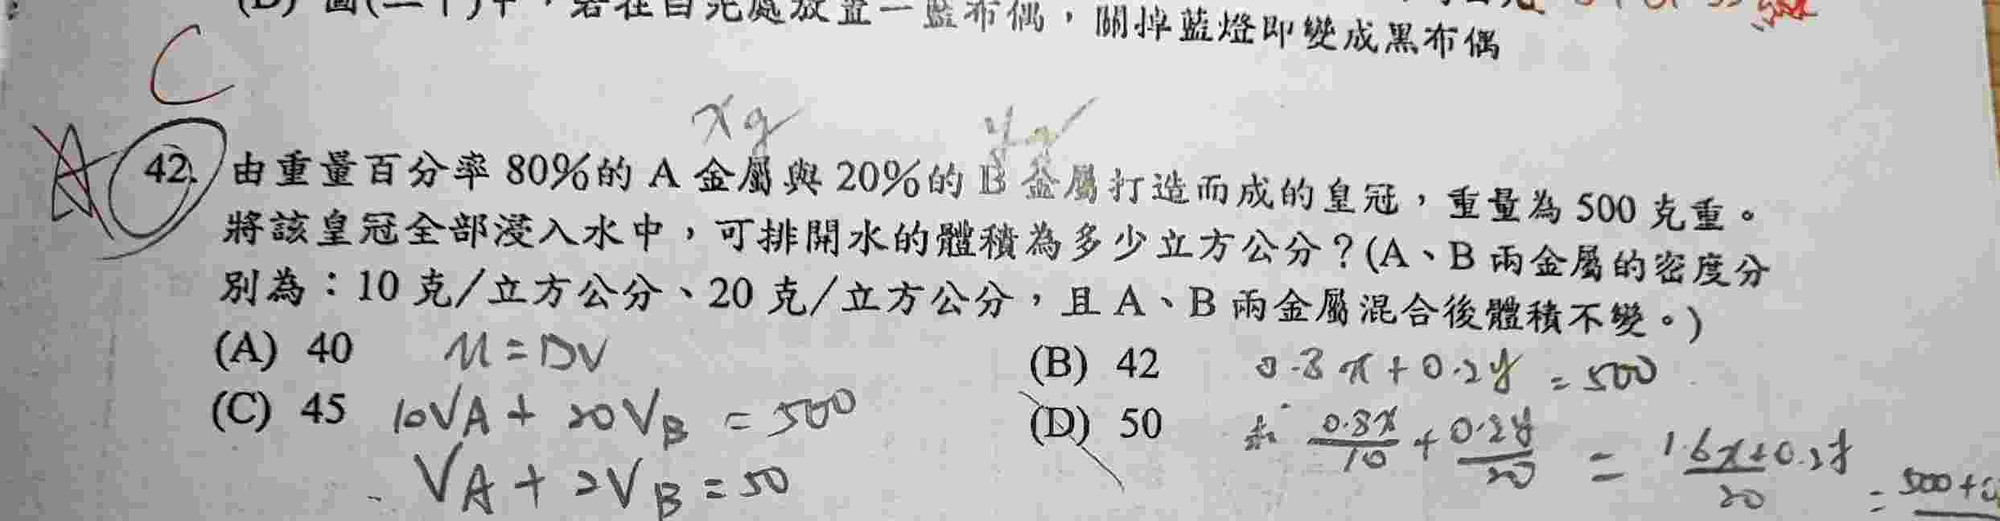 若在目光處放置一藍布偶，關掉藍燈即變成黑布偶
C
xg
y g
A 42. 由重量百分率 80%的 A 金屬與 20%的 B 金屬打造而成的皇冠，重量為 500 克重。
將該皇冠全部浸入水中，可排開水的體積為多少立方公分？(A、B 兩金屬的密度分
別為：10 克/立方公分、20 克/立方公分，且 A、B 兩金屬混合後體積不變。)
(A) 40 M=DV (B) 42 0.8x+0.2y=500
(C) 45 10VA+20VB=500 (D) 50 求 0.8x/10+0.2y/20=1.6x+0.2y/20=500+
VA+2VB=50